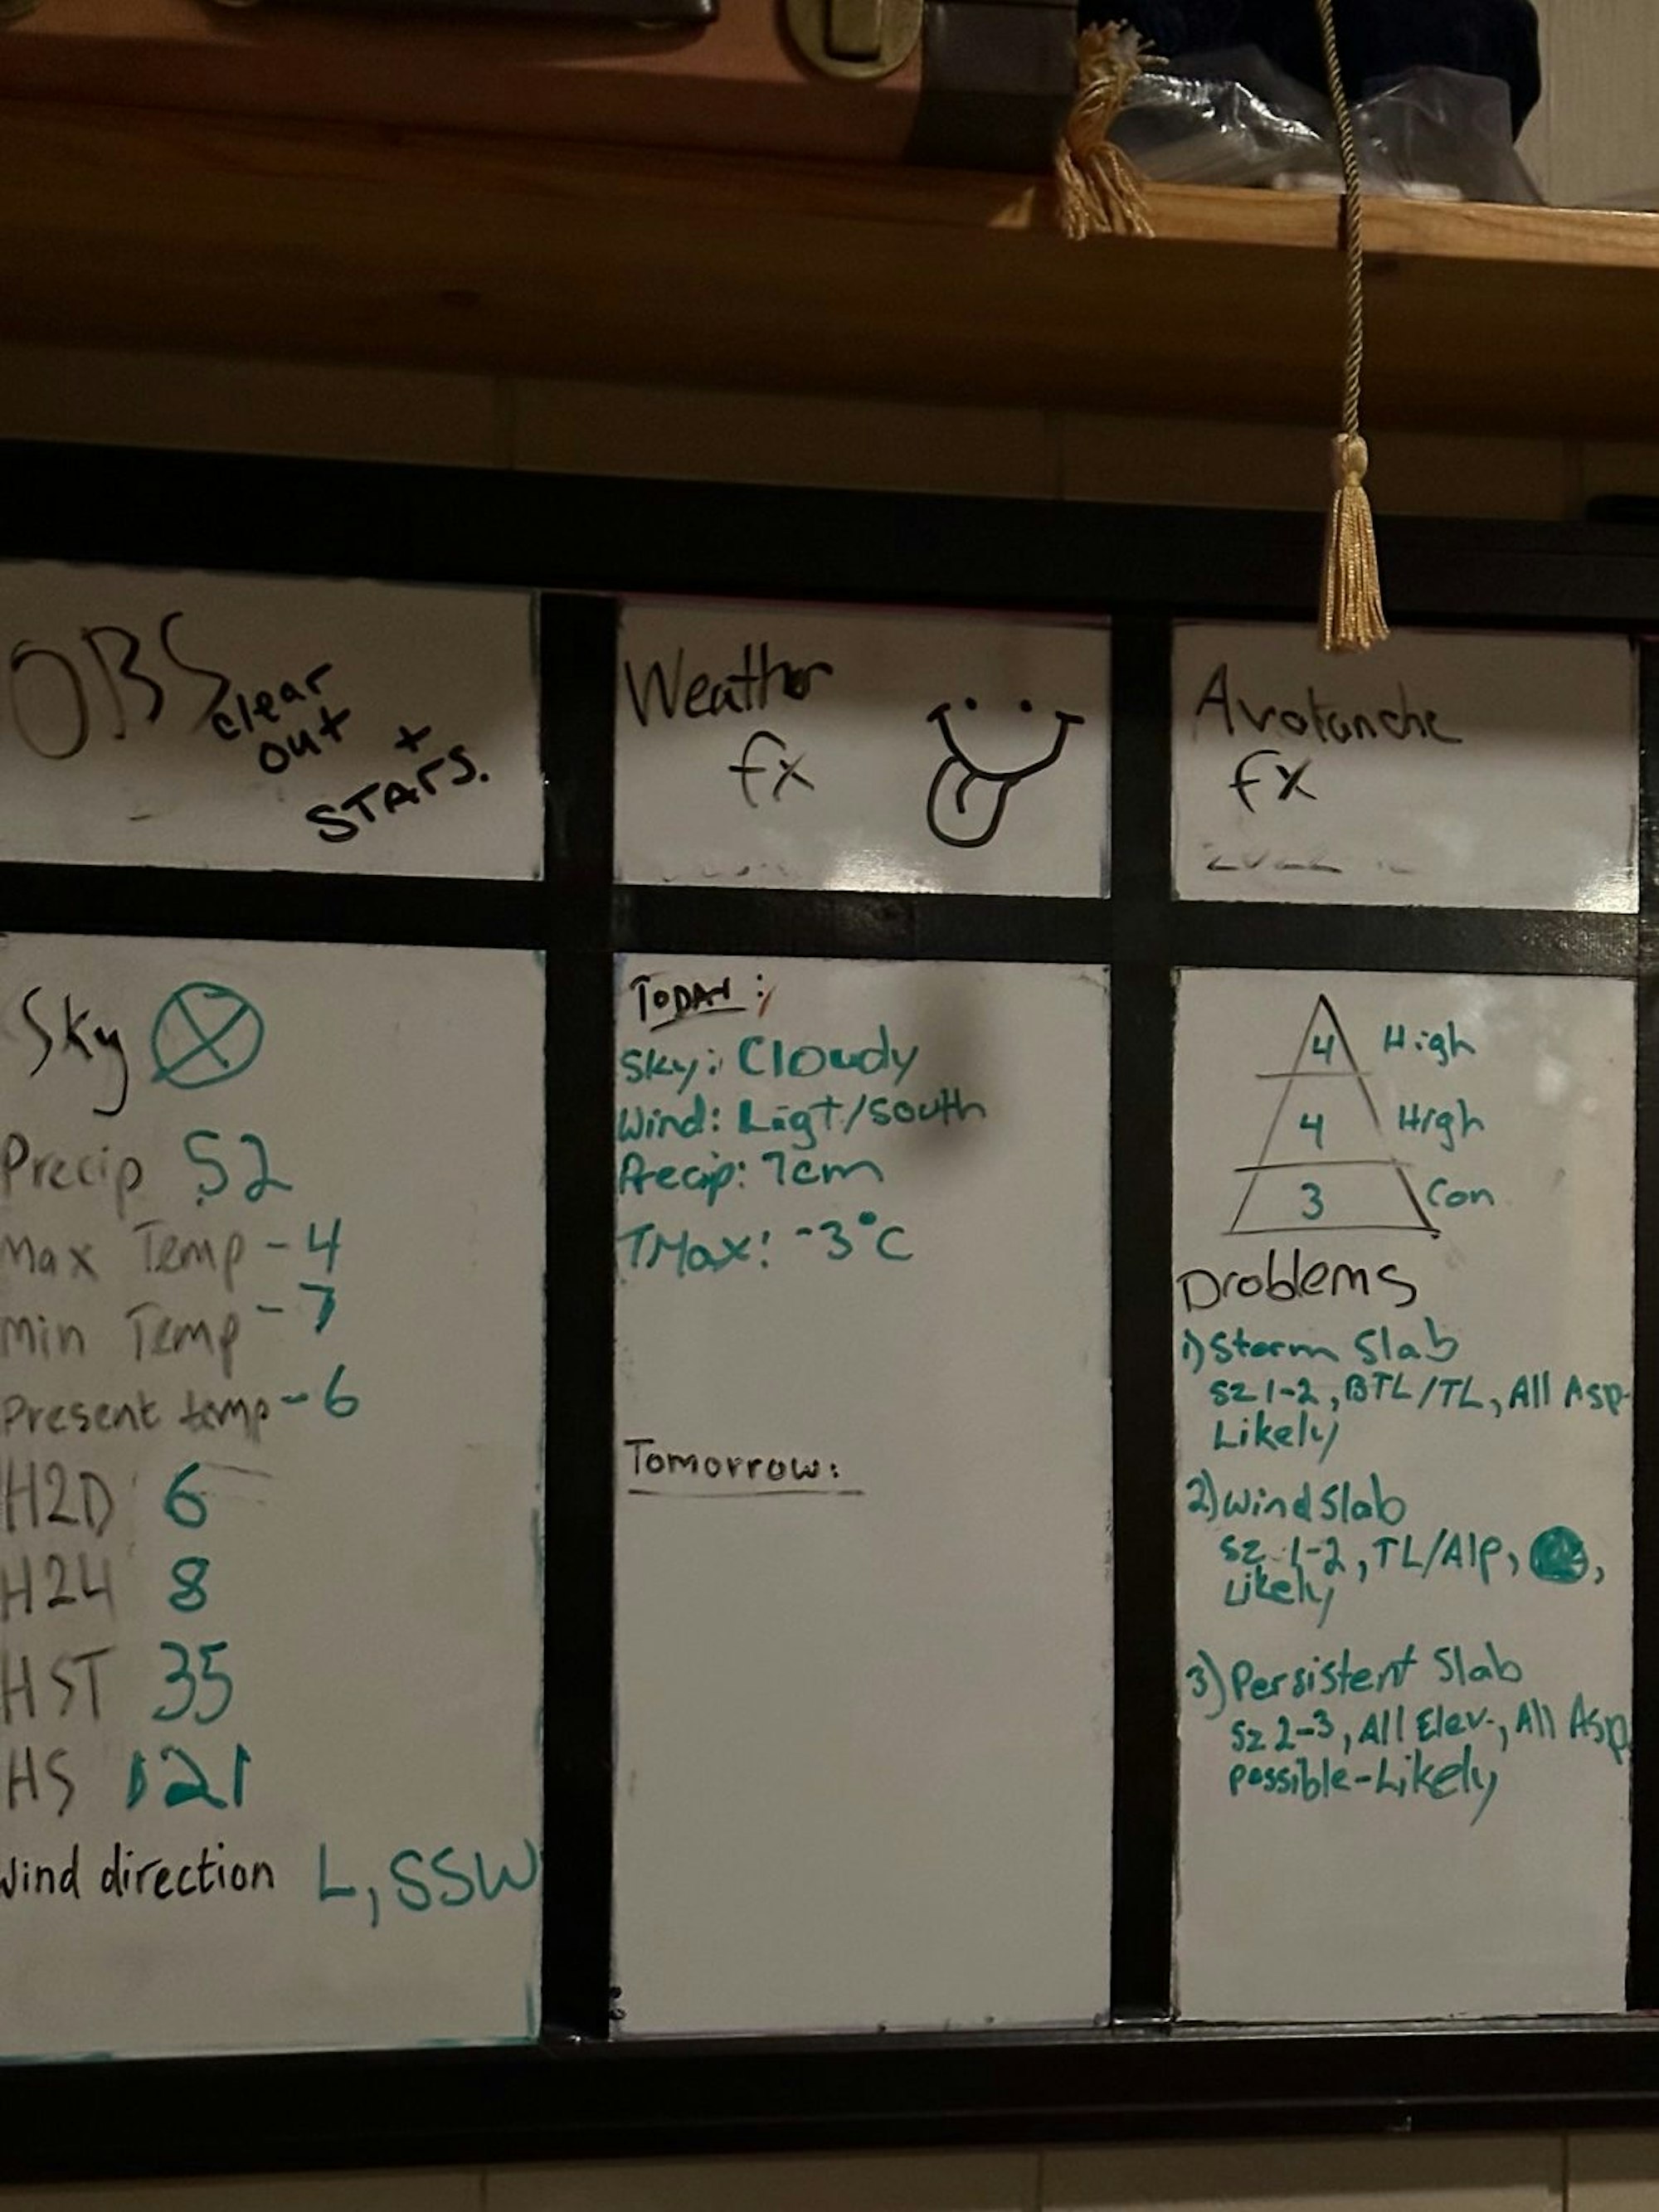 OBS
clear
out +
STARS.
Sky
Precip S2
Max Temp -4
Min Temp -7
Present temp -6
H2D 6
H24 8
HST 35
HS 121
Wind direction L, SSW
Weather
fx
TODAY:
Sky: Cloudy
Wind: Ligt/South
Precip: 7cm
TMax: -3°C
Tomorrow:
Avalanche
fx
4 High
4 High
3 Con
Problems
1) Storm Slab
Sz 1-2, BTL/TL, All Asp
Likely
2) Wind Slab
Sz 1-2, TL/Alp, ,
Likely
3) Persistent Slab
Sz 2-3, All Elev., All Asp
possible-Likely